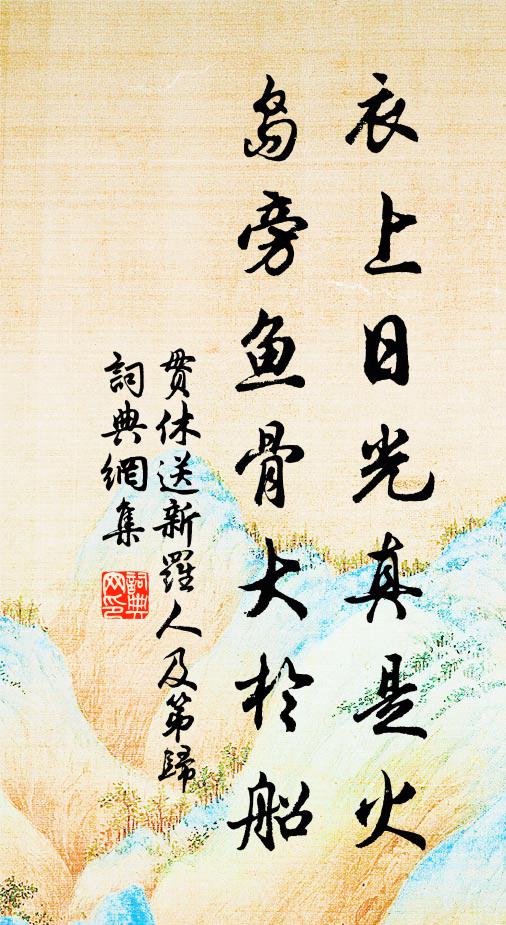 衣上日光真是火
島旁魚骨大於船
貫休送新羅人及第歸
詞典網集
詞典網印